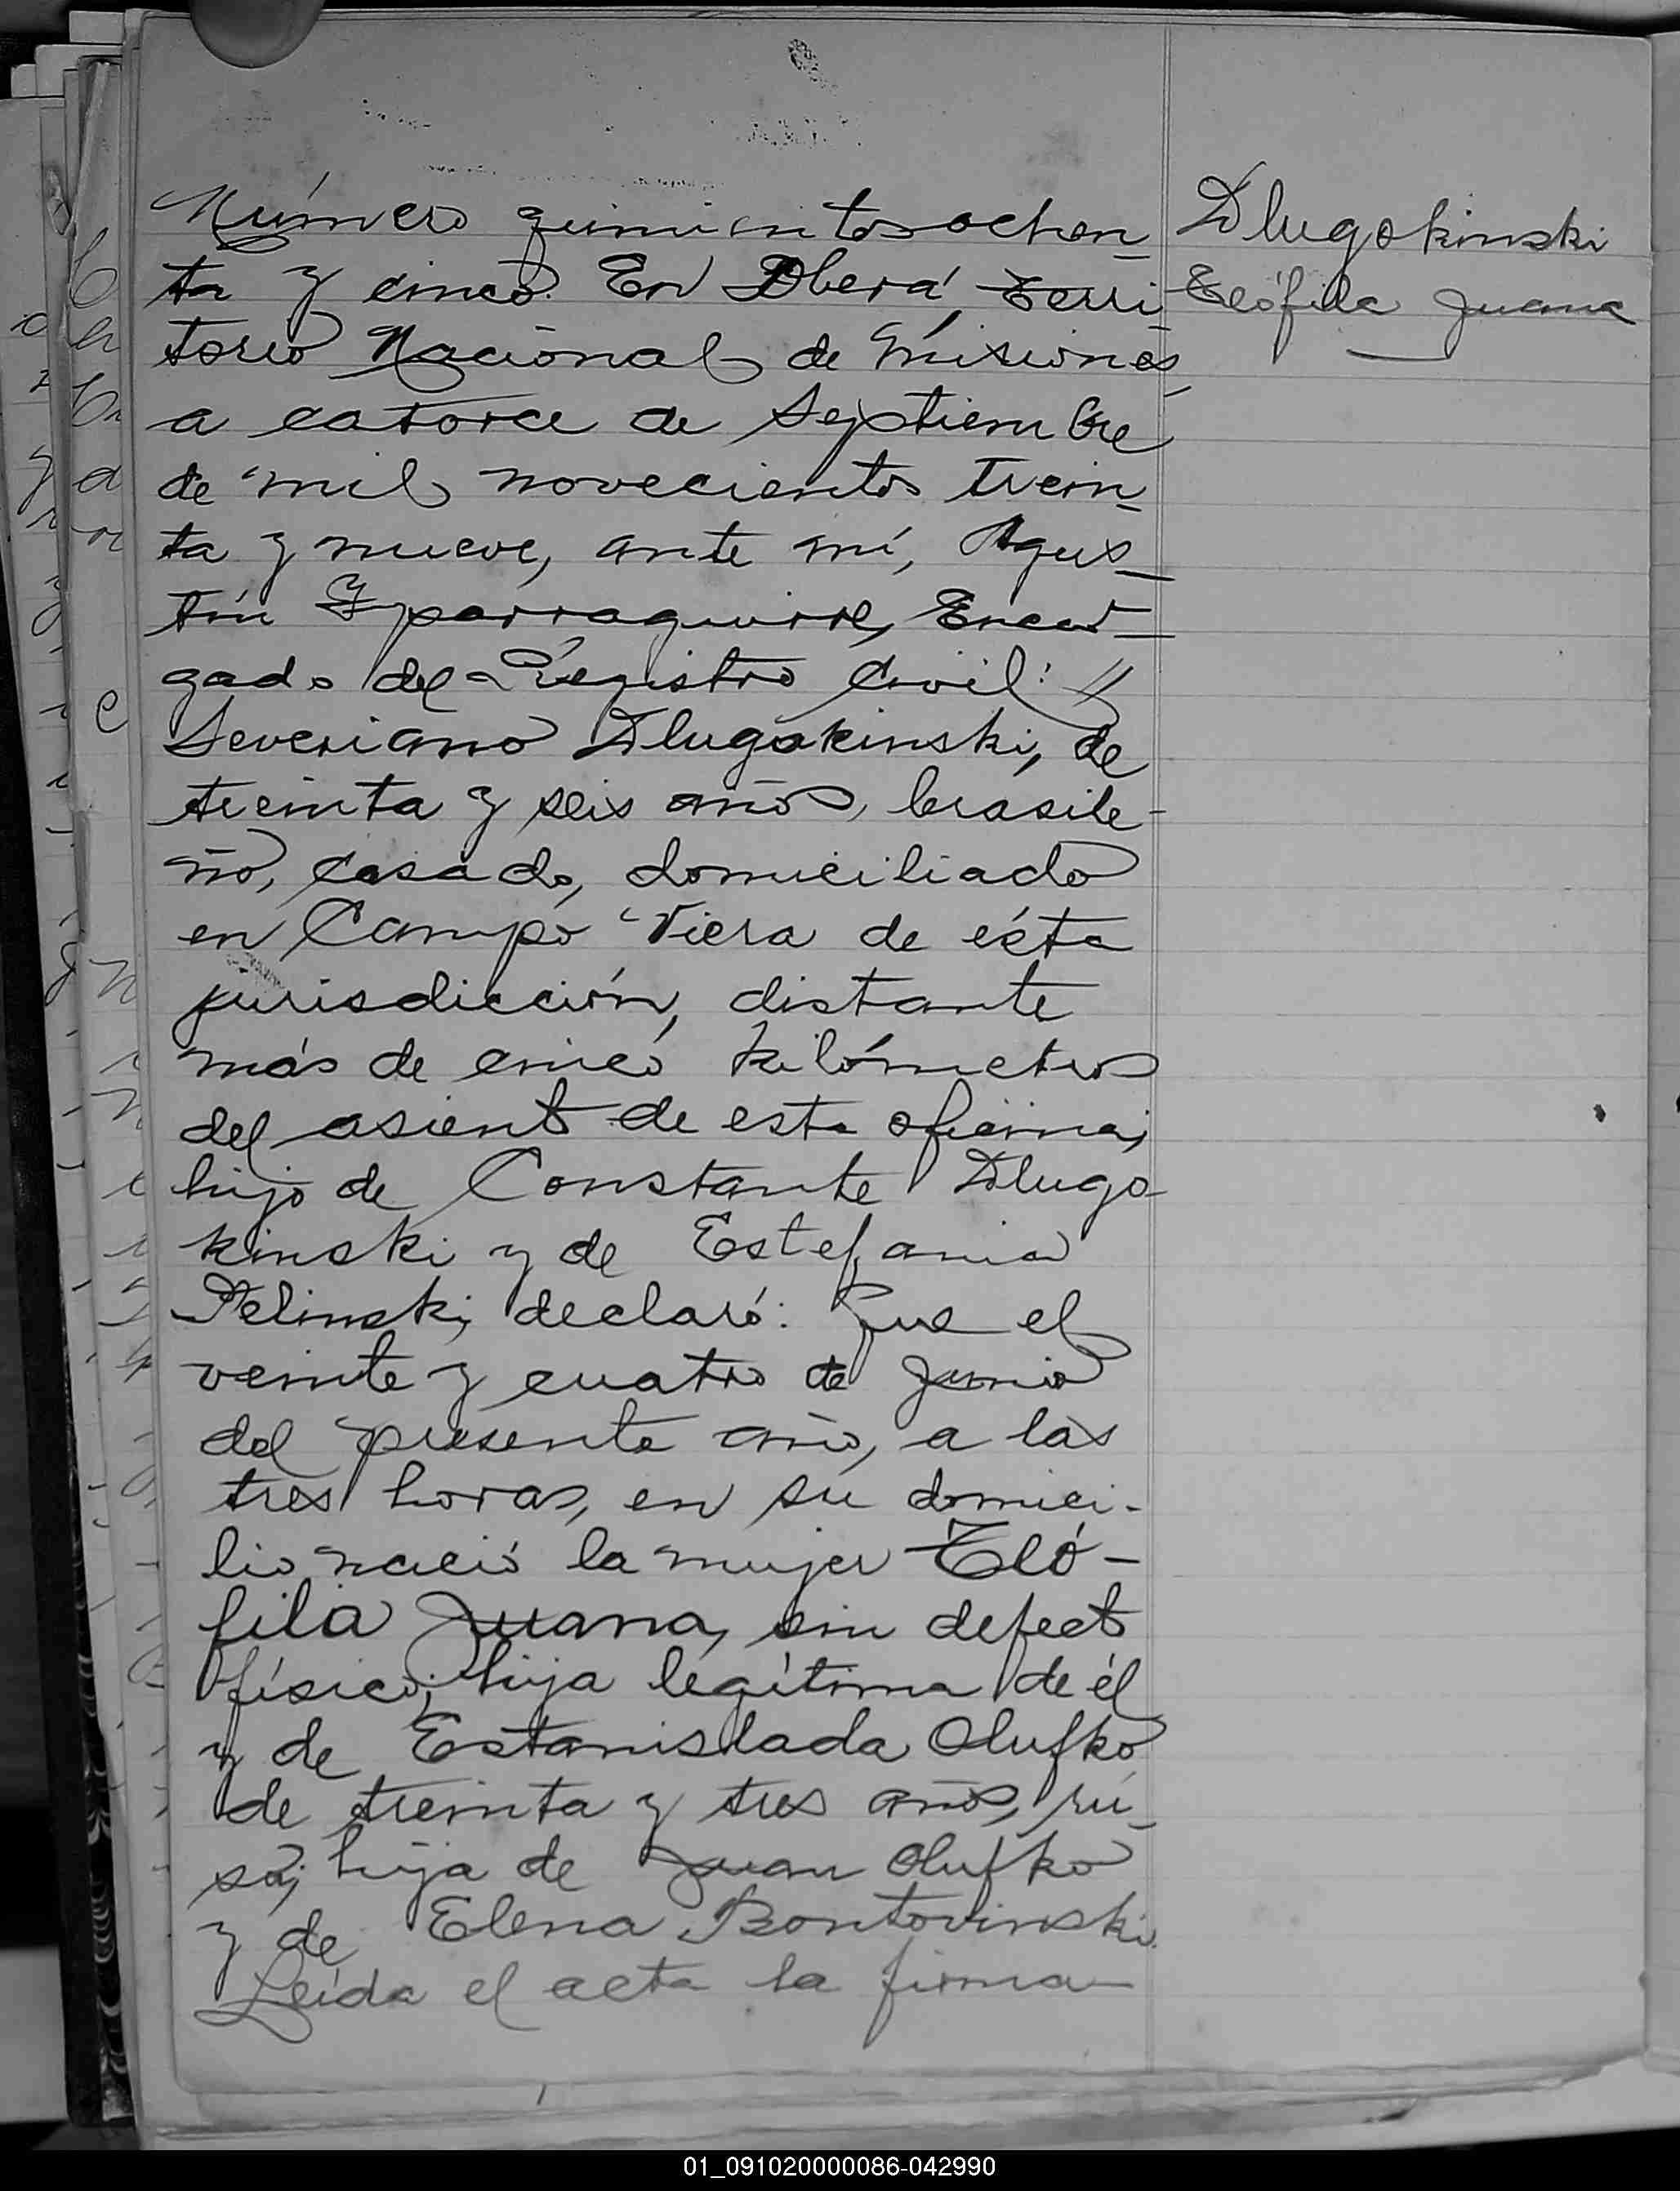 Número quinientos ochen-
ta y cinco. En Oberá, Terri-
torio Nacional de Misiones,
a catorce de Septiembre
de mil novecientos trein-
ta y nueve, ante mí, Agus-
tín Yparraguirre, Encar-
gado del Registro Civil: //
Severiano Dlugokinski, de
treinta y seis años, brasile-
ño, casado, domiciliado
en Campo Viera de ésta
jurisdicción, distante
más de cinco kilómetros
del asiento de esta oficina;
hijo de Constante Dlugo-
kinski y de Estefania
Pelinski, declaró: Que el
veinte y cuatro de Junio
del presente año, a las
tres horas, en su domici-
lio nació la mujer Teó-
fila Juana, sin defecto
físico; hija legítima de él
y de Estanislada Olufko,
de treinta y tres años, ru-
sa; hija de Juan Olufko
y de Elena Bontovinski.
Leída el acta la firma
Dlugokinski
Teófila Juana
01_091020000086-042990